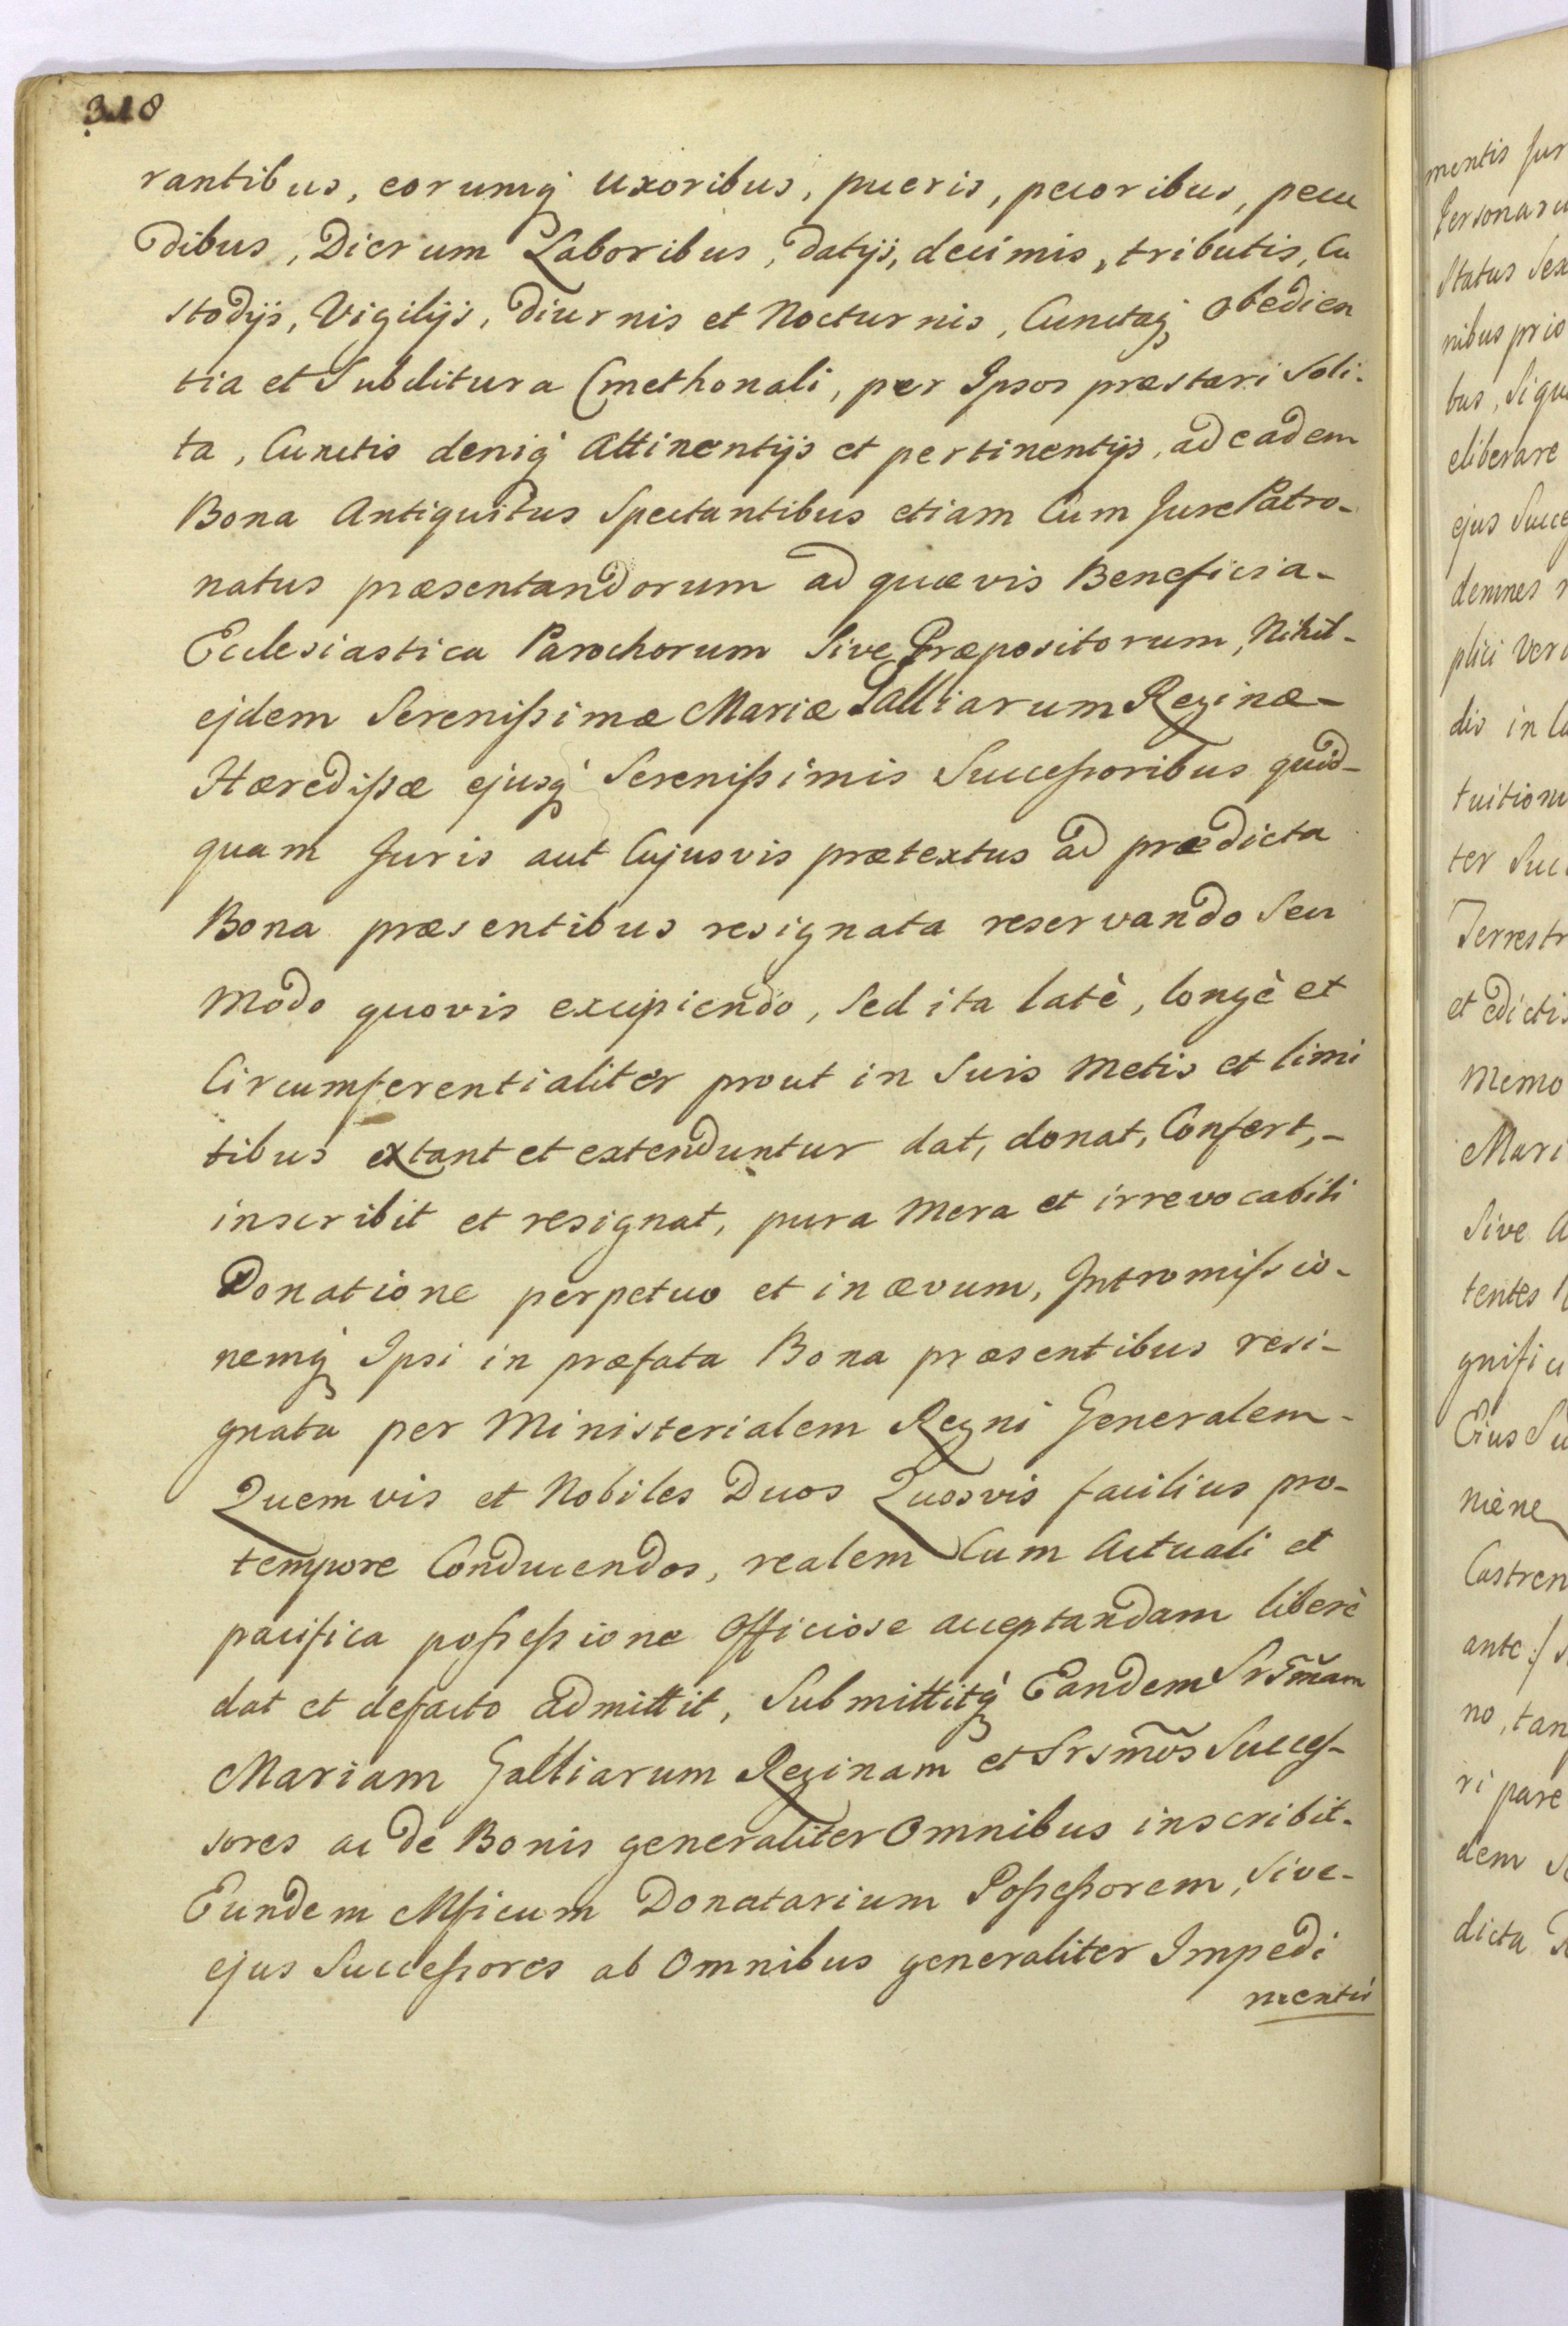 318
rantibus, eorumq̓ uxoribus, pueris, pecoribus, pecu
dibus, Dierum Laboribus, datijs, decimis, tributis, Cu
stodijs, Vigilijs, diurnis et Nocturnis, Cunctaq̓ obedien
tia et Subditura Cmethonali, per Ipsos præstari Soli-
ta, Cunctis deniq̓ Attinentijs et pertinentijs, ad eadem
Bona Antiquitus Spectantibus etiam Cum Jure Patro-
natus præsentandorum ad quævis Beneficia-
Ecclesiastica Parochorum Sive Præpositorum, Nihil-
ejdem Serenißimæ Mariæ Galliarum Reginæ-
Hæredißæ ejusq̓ Serenißimis Succeßoribus quid-
quam Juris aut Cujusvis prætextus ad prædicta
Bona præsentibus resignata reservando Seu
Modo quovis excipiendo, Sed ita latè, longè et
Circumferentialiter prout in Suis Metis et limi
tibus extant et extenduntur dat, donat, Confert,-
inscribit et resignat, pura Mera et irrevocabili
Donatione perpetuo et in ævum, Intromißio-
nemq̓ Ipsi in præfata Bona præsentibus resi-
gnata per Ministerialem Regni Generalem-
Quemvis et Nobiles Duos Quosvis facilius pro-
tempore Conducendos, realem Cum Actuali et
pacifica poßeßione Officiose acceptandam liberè
dat et defacto admittit, Submittitq̓ Eandem Srsm̃am
Mariam Galliarum Reginam et Srsm̃os Succeß-
sores ac de Bonis generaliter Omnibus inscribit-
Eundem Mficum Donatarium Poßeßorem, Sive-
ejus Succeßores ab Omnibus generaliter Impedi
mentis
mentis Jur
Personaru
Status Sex
nibus prio
bus, Siqu
eliberare
ejus Succe
plici Ver
dis in Ca
tuition
ter Suc
Terrestr
et edictis
Memo
Mari
Sive A
tentes
gnific
Ejus Su
niene
Castren
ante
no, tan
ri pare
dem
dicta